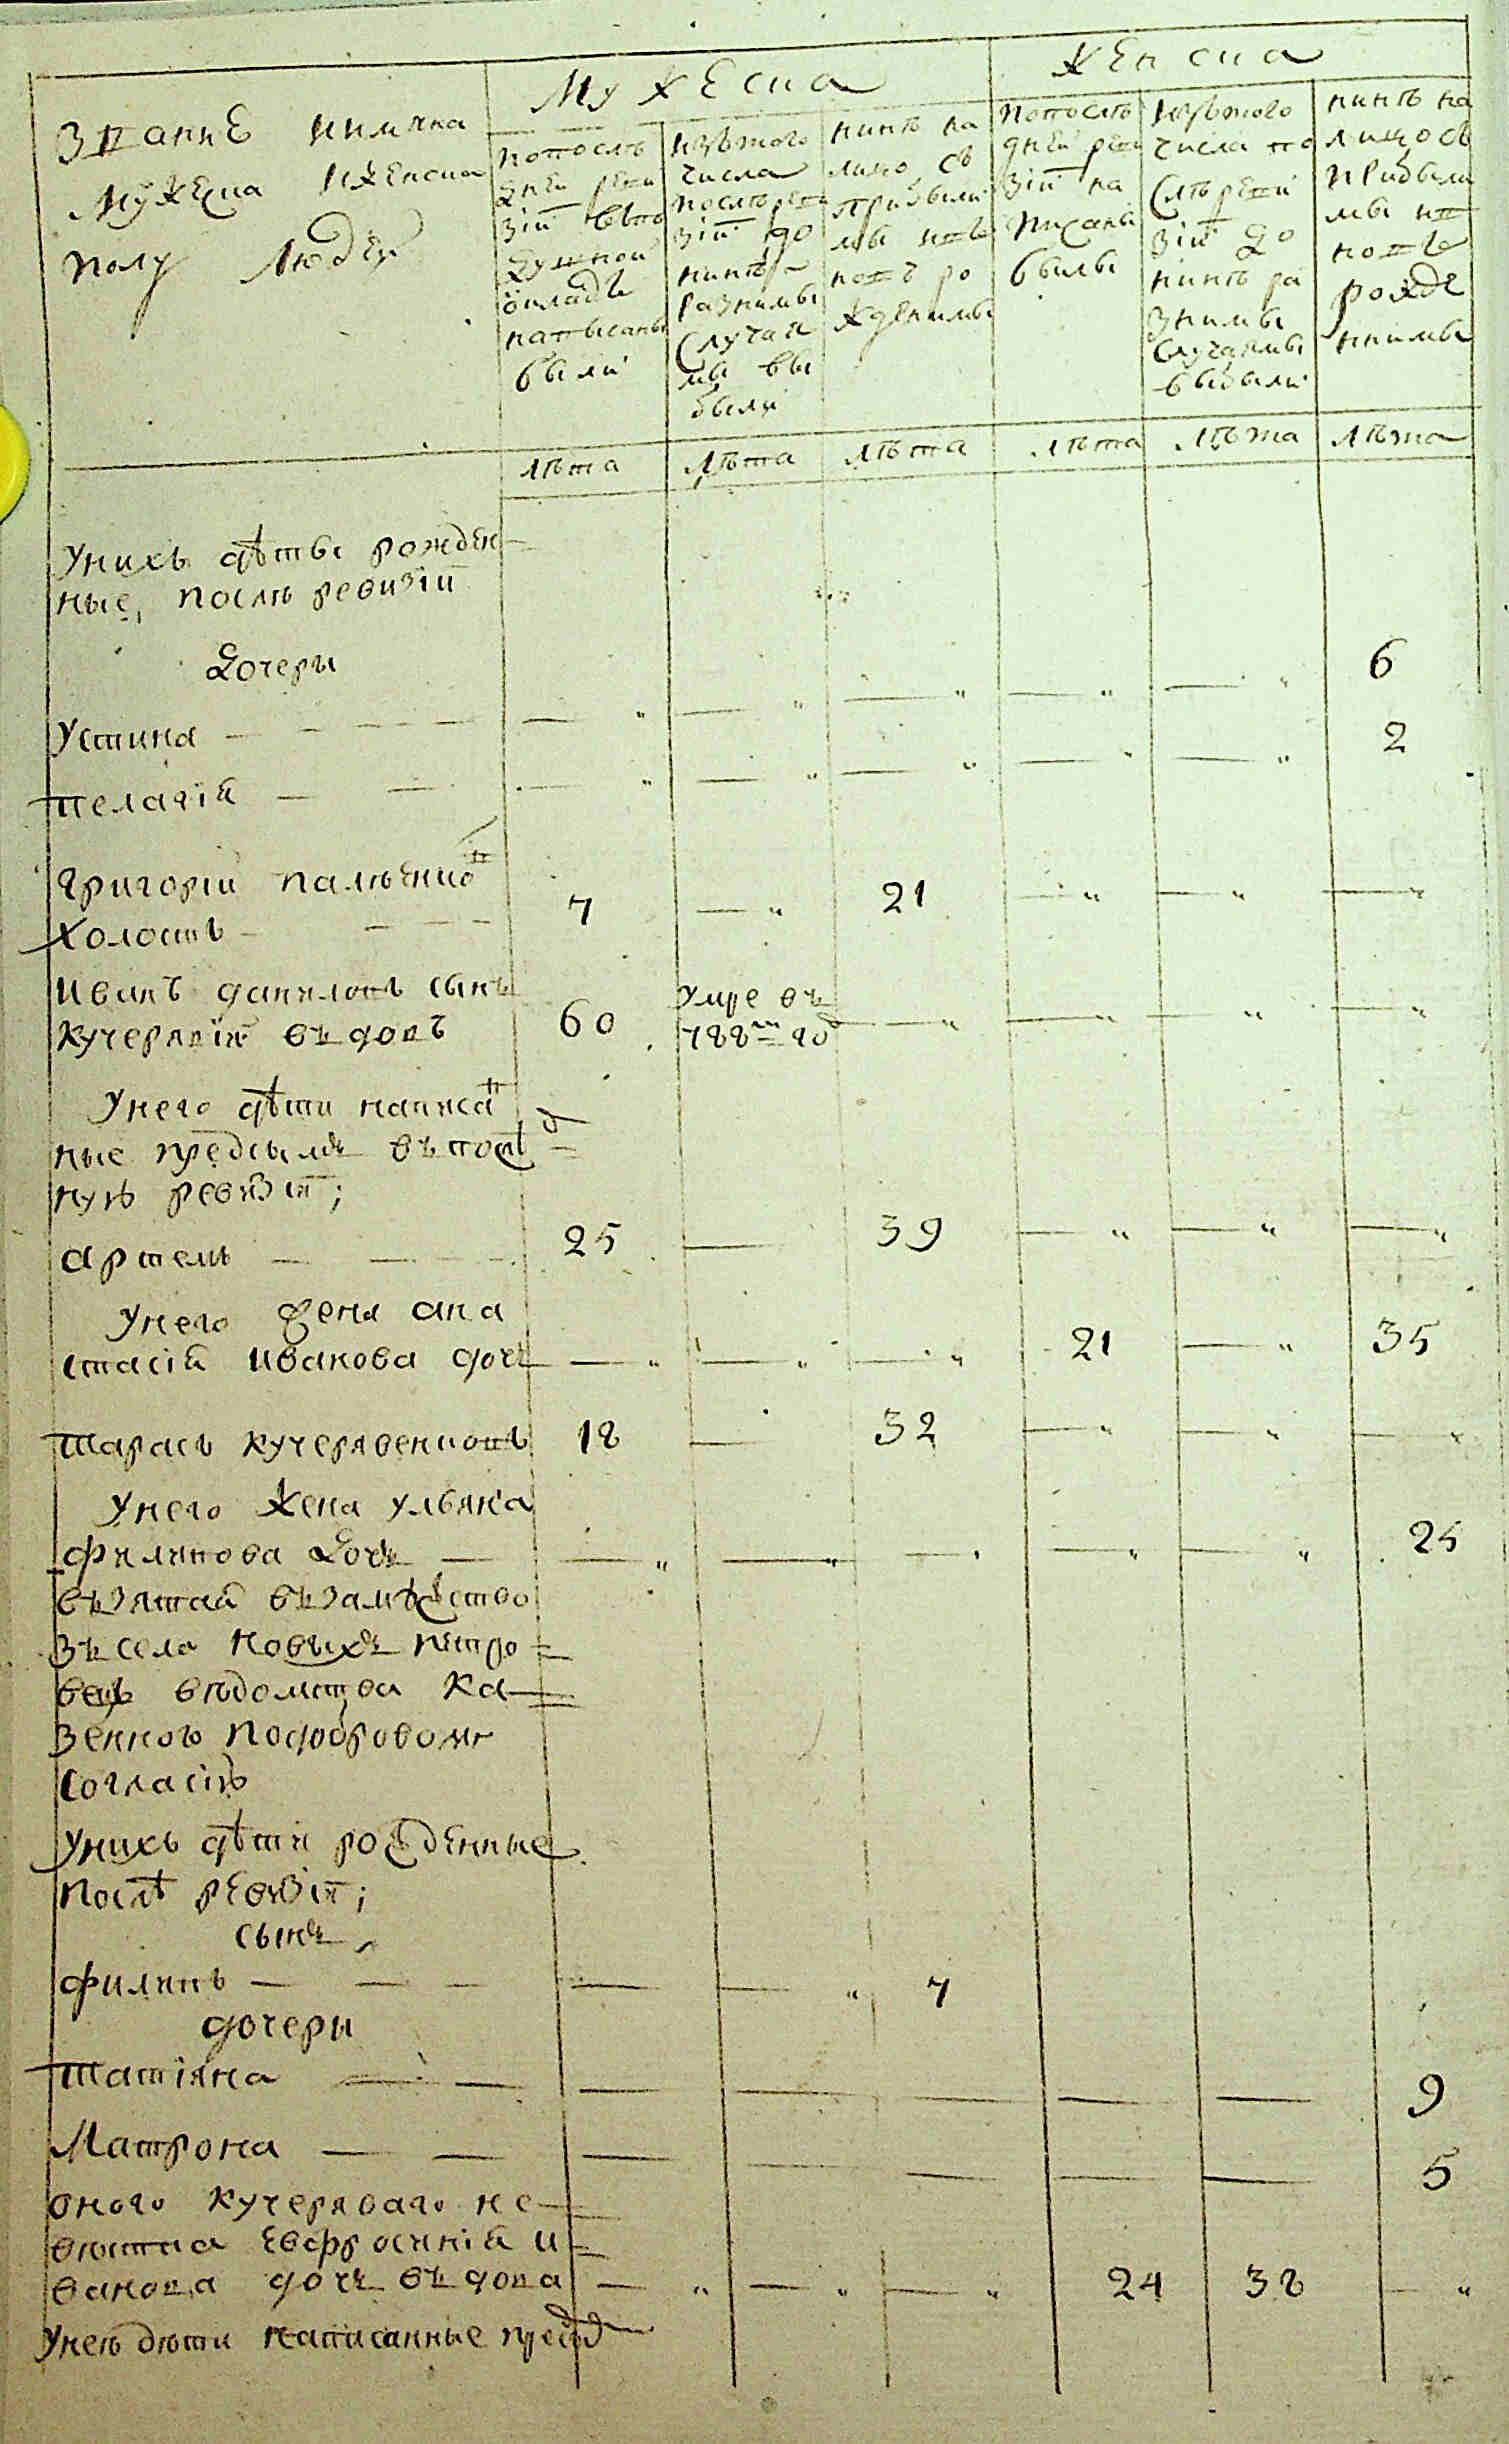 Мужеска
Женска
Звание имяна
Мужеска и женска
полу людей
попослѣ
дней реви
зіи вѣпо
душной
окладѣ
напысаны
были
Изѣтого
числа
послѣреви
зіи до
нинѣ
разнимы
случая
мы вы
были
нинѣ на
лицо сѣ
прибыли
мы и
ждѣнимы
попослѣ
дней реви
зіи на
писаны
были
Изѣтого
числа по
слѣреви
зіи до
нинѣ ра
знимы
случаимы
выбыли
нинѣ на
лицо сѣ
прибыли
мы и
рожде
нимы
лѣта лѣта лѣта лѣта лѣта лѣта
Унихъ дѣты рожден
ные, послѣ ревизіи
Дочеры
Устина 6
пелагія 2
Григорій
холостъ 7 21
Иванъ даниловъ сынъ
кучерявій въдовъ 60 умре въ 788м год
Унего дѣти написан
ные предсымъ въпослѣд
ную ревизію;
артемъ 25 39
Унего жена ана
стасія иванова дочь 21 35
тарасъ кучерявенковъ 18 32
Унего жена ульяна
филипова дочь 25
възятая възамужество
зъ села новыхъ петро
вецъ вѣдомства ка
зенного подобровому
согласію
Унихъ дѣти рожденные
послѣ ревизіи;
сынъ
филипъ 7
дочеры
татіяна 9
Матрона 5
оного кучеряваго не
вѣстка евфросинія и
ванова дочь въдова 24 38
Унею дѣти написанные пред